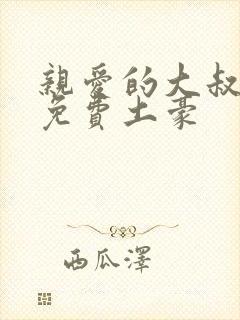 親愛的大叔
免費土豪
西瓜澤